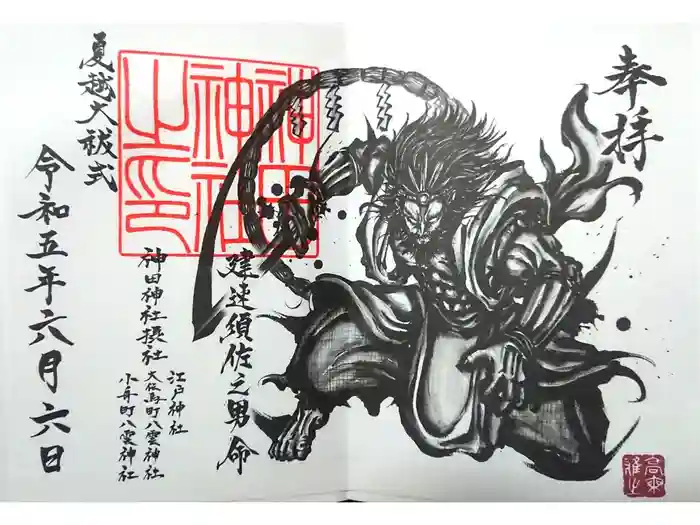 奉拝
建速須佐之男命
神田神社之印
神田神社摂社
江戸神社
大伝馬町八雲神社
小舟町八雲神社
夏越大祓式
令和五年六月六日